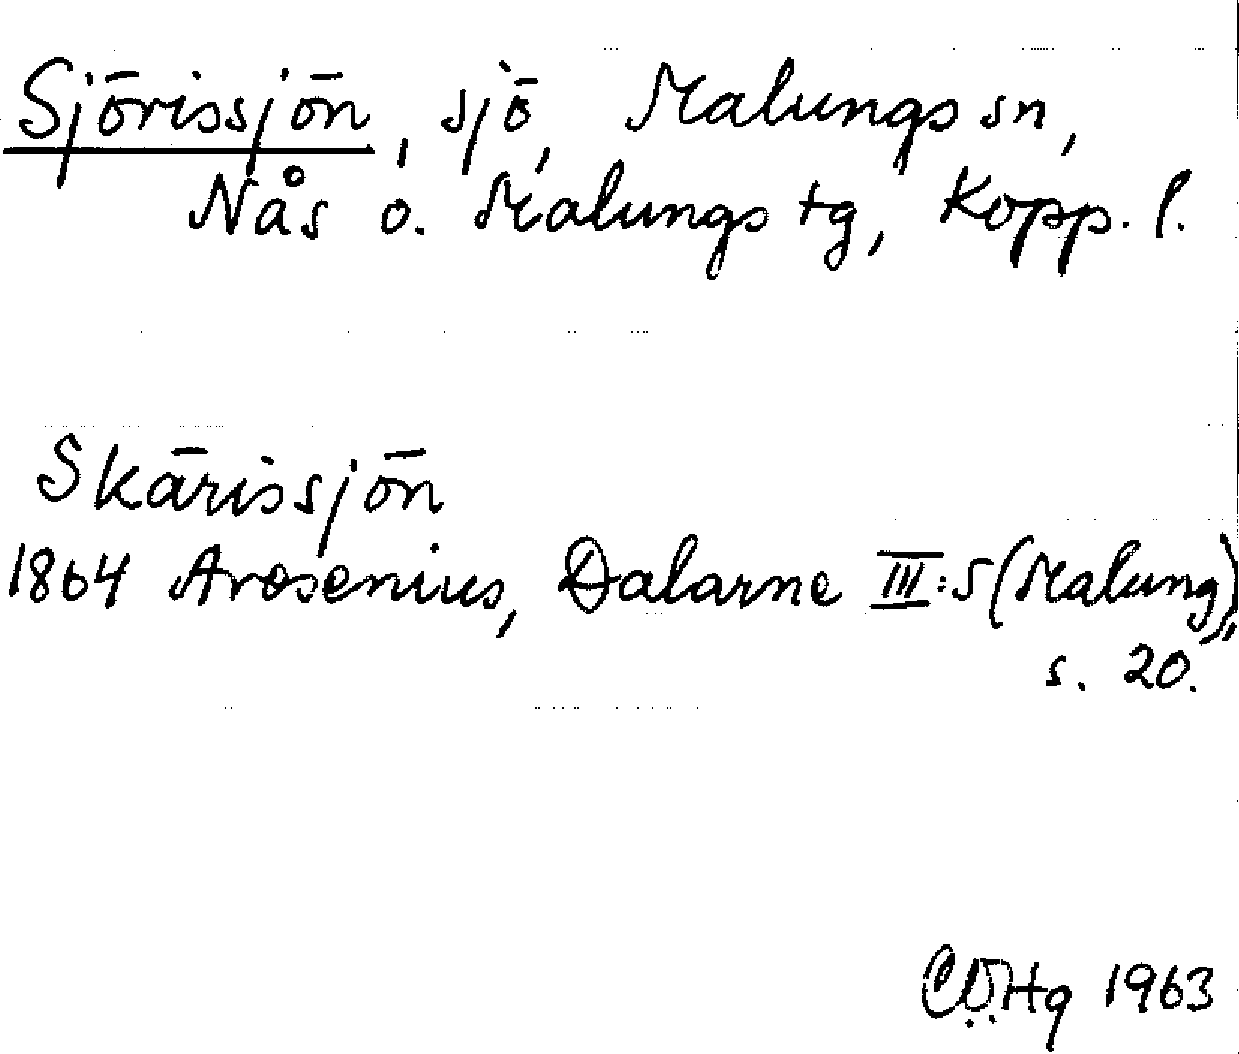 Sjörissjön, sjö, Malungs sn,
Nås o. Malungs tg, Kopp. l.
Skärissjön
1864 Arosenius, Dalarne III:5 (Malung),
s. 20.
1963